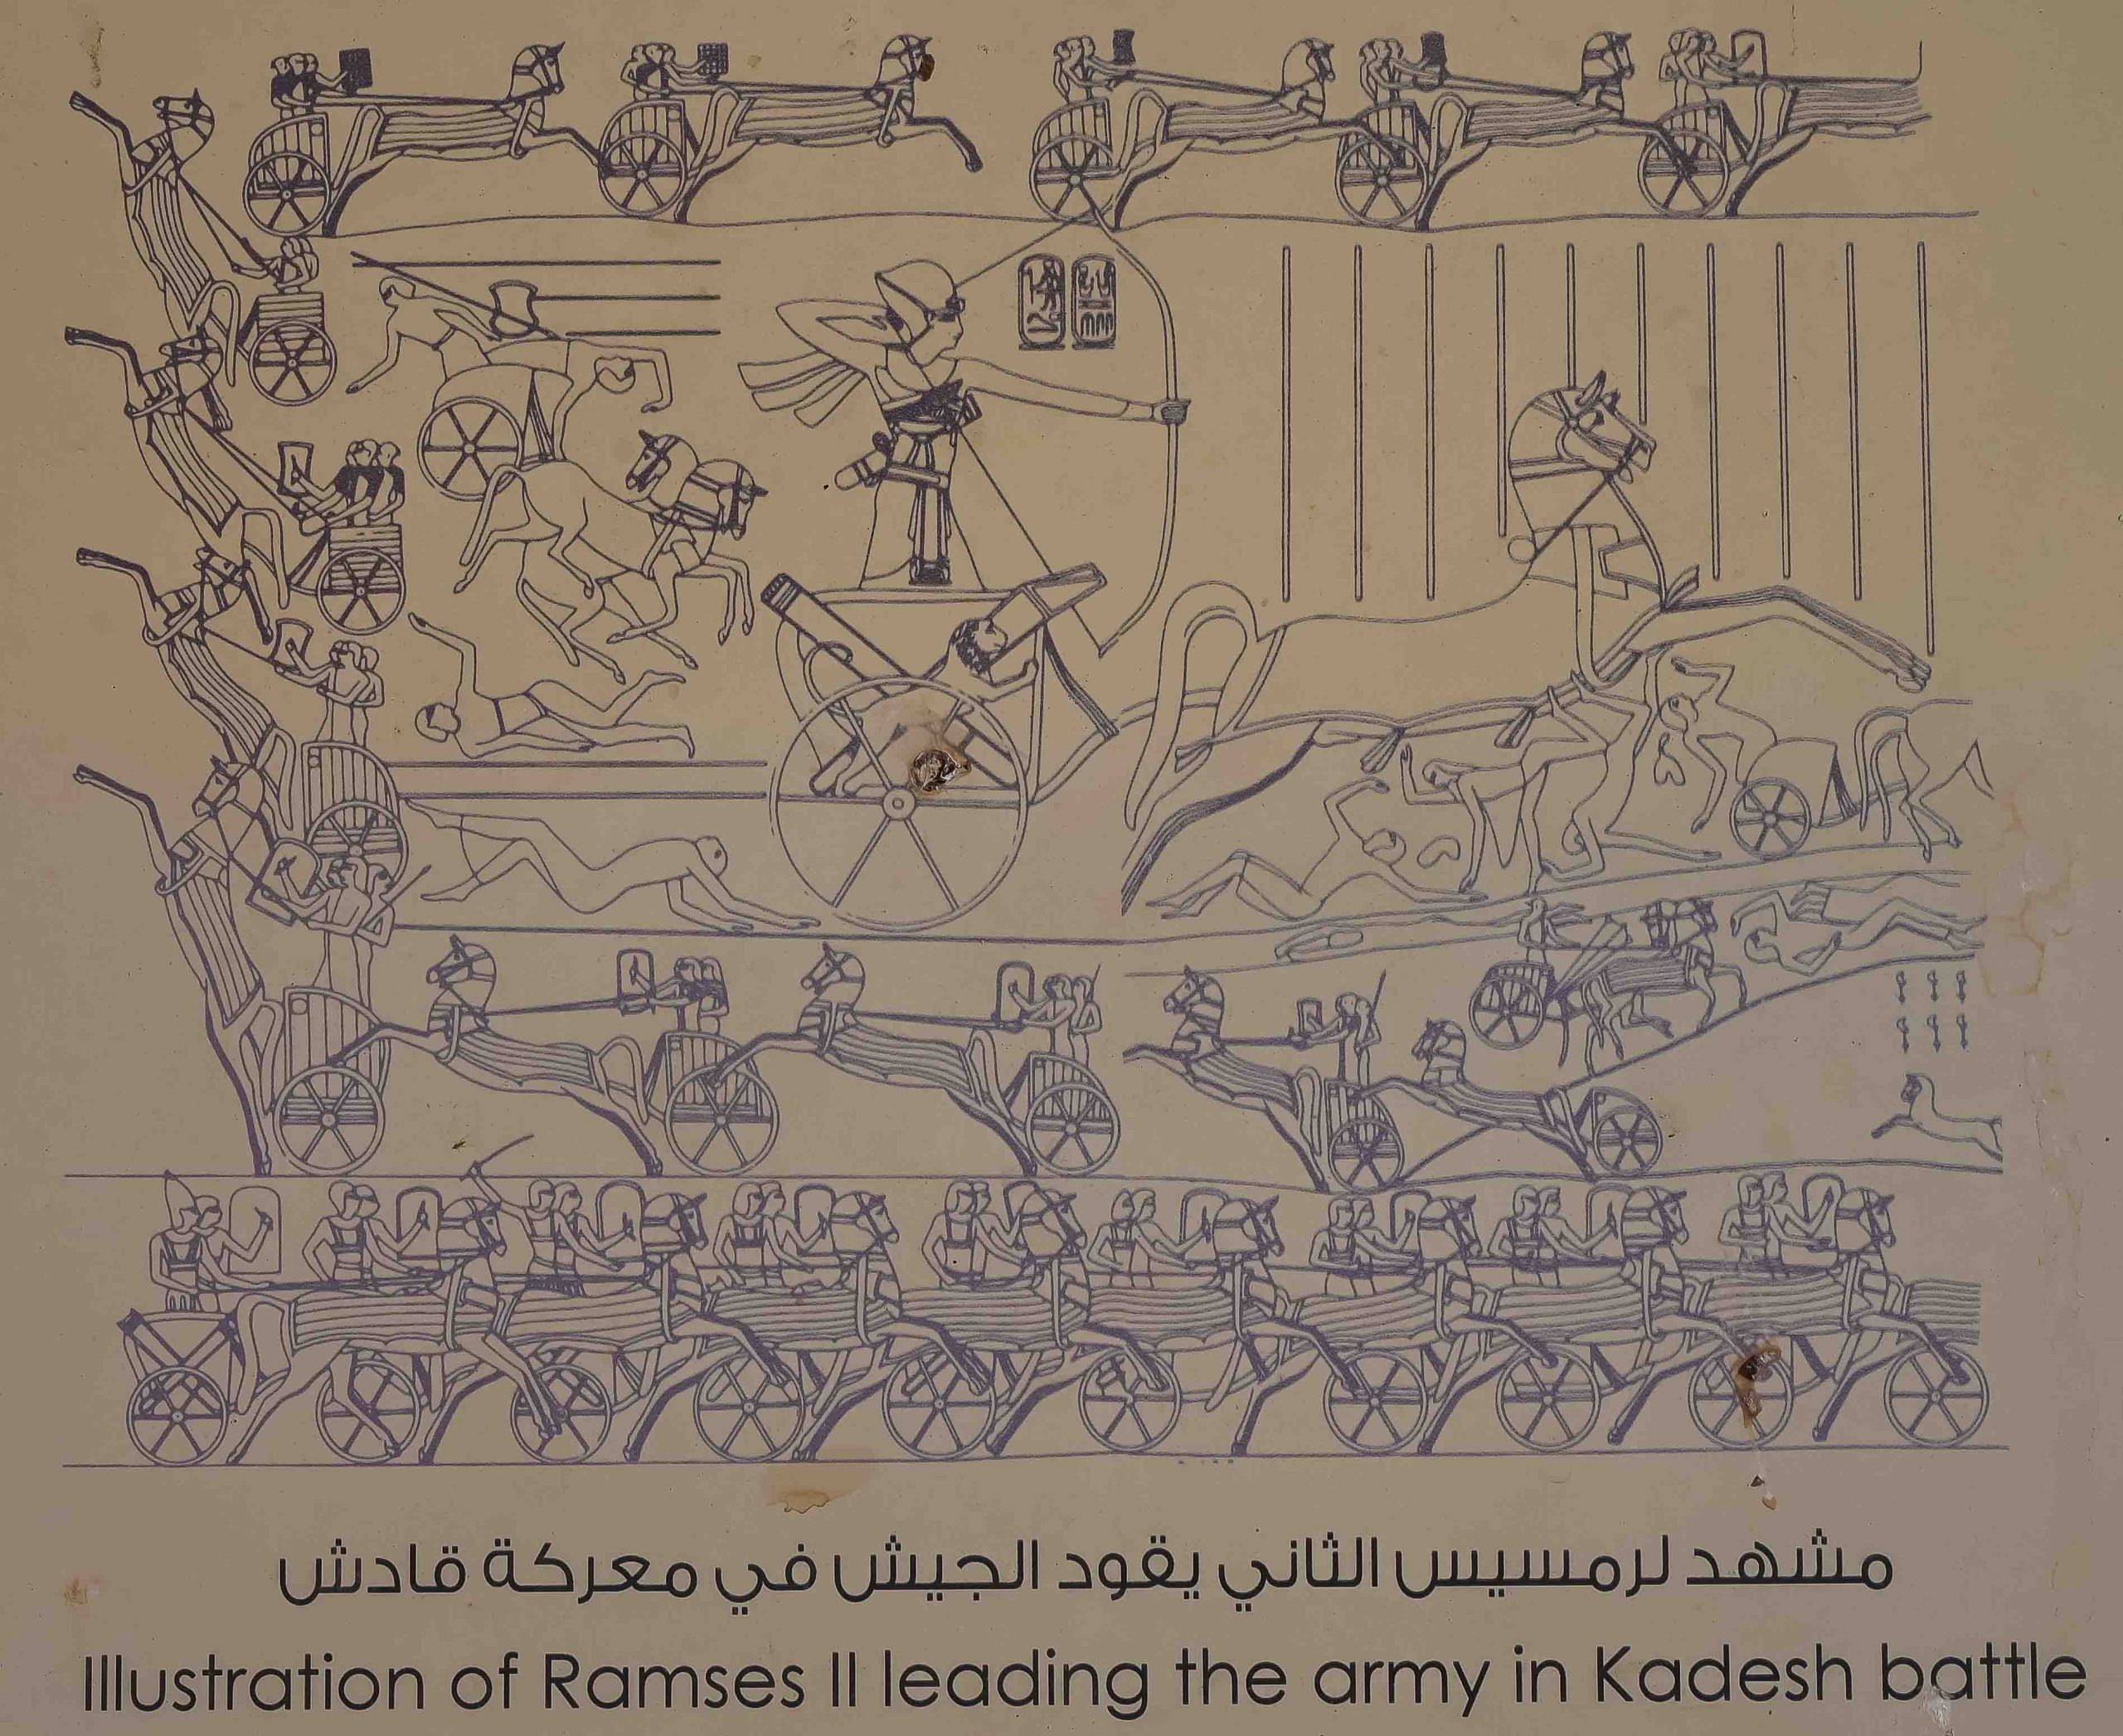 مشهد لرمسيس الثاني يقود الجيش في معركة قادش
Illustration of Ramses II leading the army in Kadesh battle